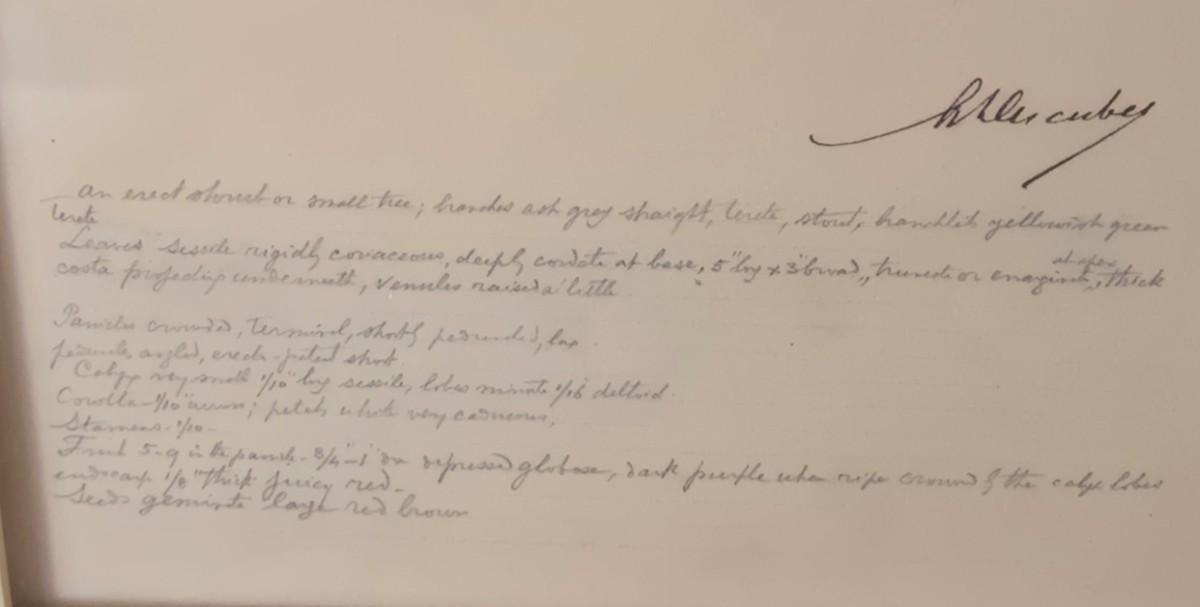 an erect shrub or small tree; branches ash grey straight, terete, stout, branchlets yellowish green
terete
Leaves sessile rigidly coriaceous, deeply cordate at base, 5" long x 3" broad, truncate or emarginate at apex, thick
costa projecting underneath, venules raised a little
Panicles crowded, terminal, shortly peduncled, lax
peduncles angled, erecto-patent short.
Calyx very small 1/10" long sessile, lobes minute 1/16 deltoid.
Corolla - 1/10" across; petals white very caducous,
Stamens - 1/10 -
Fruit 5-9 in the panicle - 3/4"-1" depressed globose, dark purple when ripe crowned by the calyx lobes
endocarp 1/8" thick juicy red -
Seeds geminate large red brown